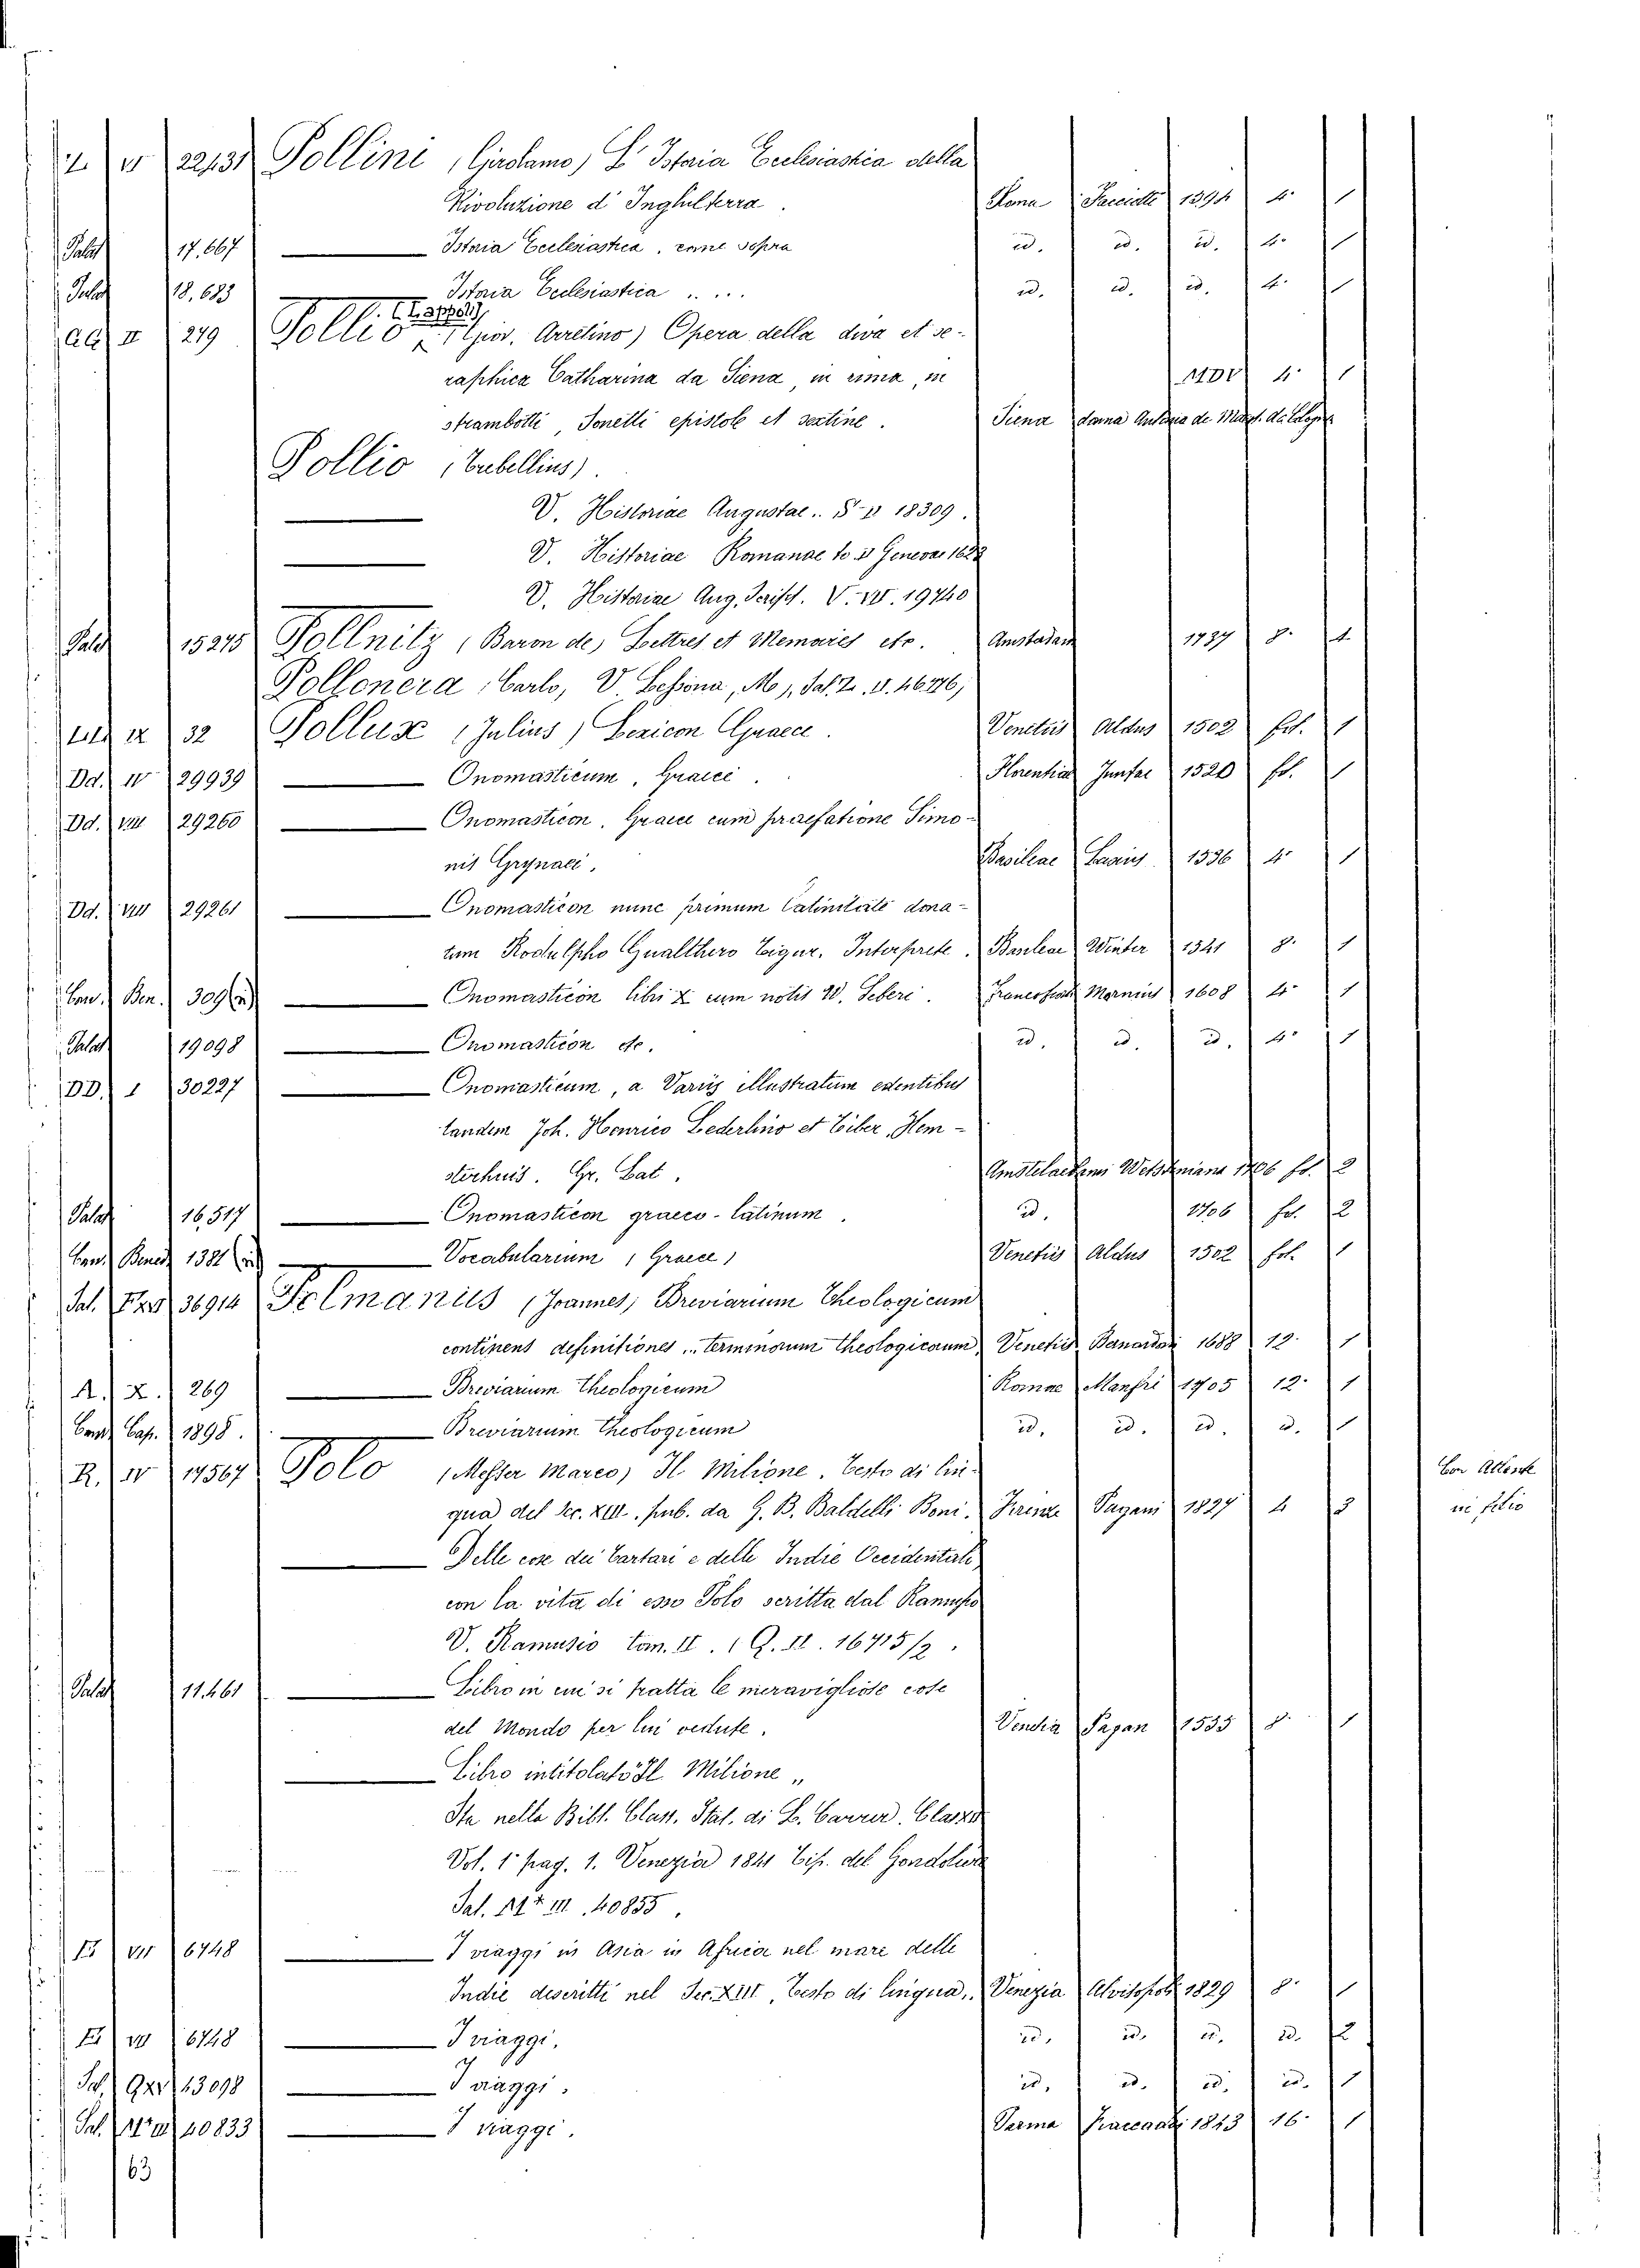 Z. V 22131 Pollini (Girolamo) L' Istoria Ecclesiastica della
Rivoluzione d' Inghilterra. Roma Facciotti 1594 4° 1
Palat 17.667 Istoria Ecclesiastica, come sopra id. id. id. 4° 1
Palat 18.683 Istoria Ecclesiastica ..... id. id. id. 4° 1
(Lappoli)
AG II 279 Pollio (Giov. Arretino) Opera della diva et se-
raphica Catharina da Siena, in rima, in MDV 4° 1
strambotti, Sonetti epistole et sextine. Siena donna Antonia de
Pollio (Trebellius)
V. Historiae Augustae.. S V 18309.
V. Historiae Romanae to 2 Genevae 1623
V. Historiae Aug. Script. V. VII. 19740
Palat 15275 Pollnitz (Baron de) Lettres et Memoires etc. Amstadam 1737 8° 4
Pollonera (Carlo, V. Lessona, M), Sal. Z. V. 46776)
IX 32 Pollux (Julius) Lexicon Graece. Venetiis Aldus 1502 fol. 1
Dd. IV 29939 Onomasticum, Graece. Florentiae Juntae 1520 fol. 1
Dd. VIII 29260 Onomasticon, Graece cum praefatione Simo-
nis Grynaei, Basileae Lasius 1536 4° 1
Dd. VIII 29261 Onomasticon nunc primum Latinitate dona-
tum Rodulpho Gualthero Tigur. Interprete. Basileae Winter 1541 8° 1
Conv. Ben. 309 Onomasticon libri X cum notis W. Seberi. Francofurti Mornius 1608 4° 1
Palat 19098 Onomasticon etc. id. id. id. 4° 1
DD. I 30227 Onomasticum, a Variis illustratum edentibus
tandem Joh. Henrico Lederlino et Tiber. Hem-
sterhuis. Gr. Lat. Amstelaedami Wetsteniana 1706 fol. 2
Palat 16,517 Onomasticon graeco-latinum. id. 1706 fol. 2
Conv. Bened. 1381 Vocabularium (Graece) Venetiis Aldus 1502 fol. 1
Sal. 36914 Polmanus (Joannes) Breviarium Theologicum
continens definitiones ... terminorum theologicorum, Venetiis 1688 12° 1
A. X. 269 Breviarium Theologicum Romae Manfri 1705 12° 1
Conv. Cap. 1898. Breviarium Theologicum id. id. id. id. 1
R. IV 17567 Polo (Messer Marco) Il Milione. Testo di lin- Con Atlante
gua del Sec. XIII. pub. da G. B. Baldelli Boni. Firenze Pagani 1827 4 3 in folio
Delle cose dei Tartari e delle Indie Occidentali,
con la vita di esso Polo scritta dal Ramusio
V. Ramusio tom. II. (Q. II. 16715/2.
Palat 11.461 Libro in cui si tratta le meravigliose cose
del Mondo per lui vedute. Venetia Pagan 1555 8° 1
Libro intitolato Il Milione "
Sta nella Bibl. Class. Ital. di L. Carrer. Classe
Vol. 1° pag. 1. Venezia 1841 Tip. del Gondoliere
Sal. III. 40855.
E VII 6748 I viaggi in Asia in Africa nel mare delle
Indie descritti nel Sec. XIII, Testo di lingua. Venezia Alvisopoli 1829 8° 1
E VII 6748 I viaggi. id. id. id. id. 2
Sal. 43098 I viaggi. id. id. id. id. 1
Sal. 40833 I viaggi. Parma 1843 16° 1
63